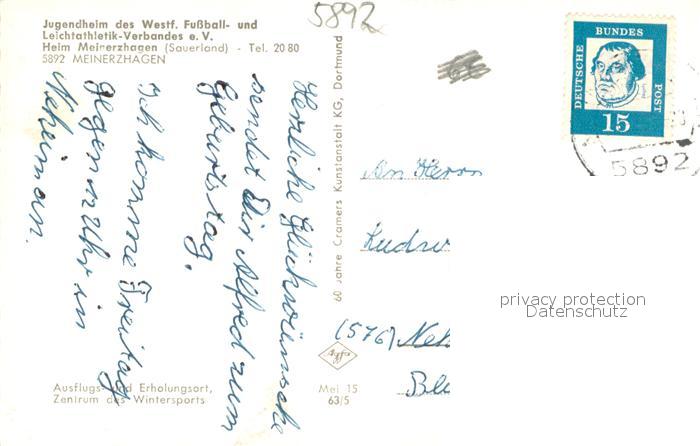 Jugendheim des Westf. Fußball- und
Leichtathletik-Verbandes e. V.
Heim Meinerzhagen (Sauerland) - Tel. 20 80
5892 MEINERZHAGEN
5892
66
DEUTSCHE
BUNDES
POST
15
5892
Herzliche Glückwünsche
sendet Dir Alfred zum
Geburtstag.
Ich komme Freitag
gegen Uhr in
Neheim an.
60 Jahre Cramers Kunstanstalt KG, Dortmund
An Herrn
Ludw
(576) Neh
Agfa
Mei 15
63/5
Ausflugs- und Erholungsort,
Zentrum des Wintersports
privacy protection
Datenschutz